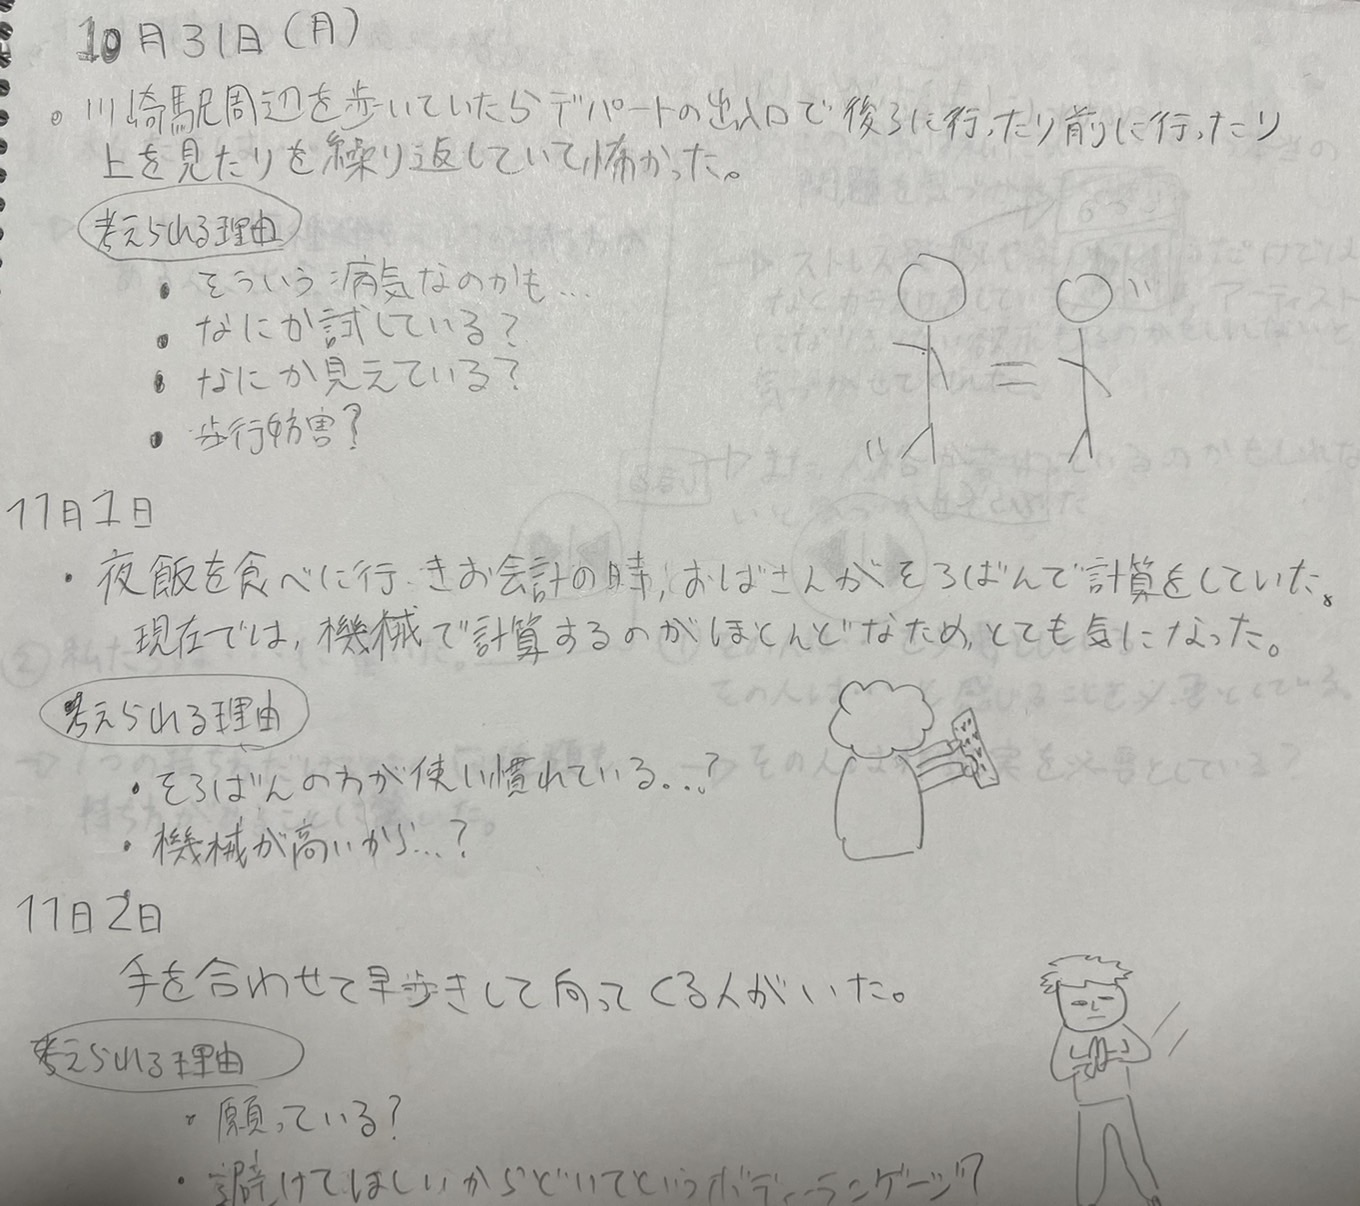 10月31日(月)
川崎駅周辺を歩いていたらデパートの出入口で後ろに行ったり前に行ったり
上を見たりを繰り返していて怖かった。
考えられる理由
・そういう病気なのかも…
・なにか試している?
・なにか見えている?
・歩行妨害?
11月1日
・夜飯を食べに行きお会計の時、おばさんがそろばんで計算をしていた。
現在では、機械で計算するのがほとんどなため、とても気になった。
考えられる理由
・そろばんの方が使い慣れている…?
・機械が高いから…?
11日2日
手を合わせて早歩きして向ってくる人がいた。
考えられる理由
・願っている?
・避けてほしいからどいてというボディーランゲージ?